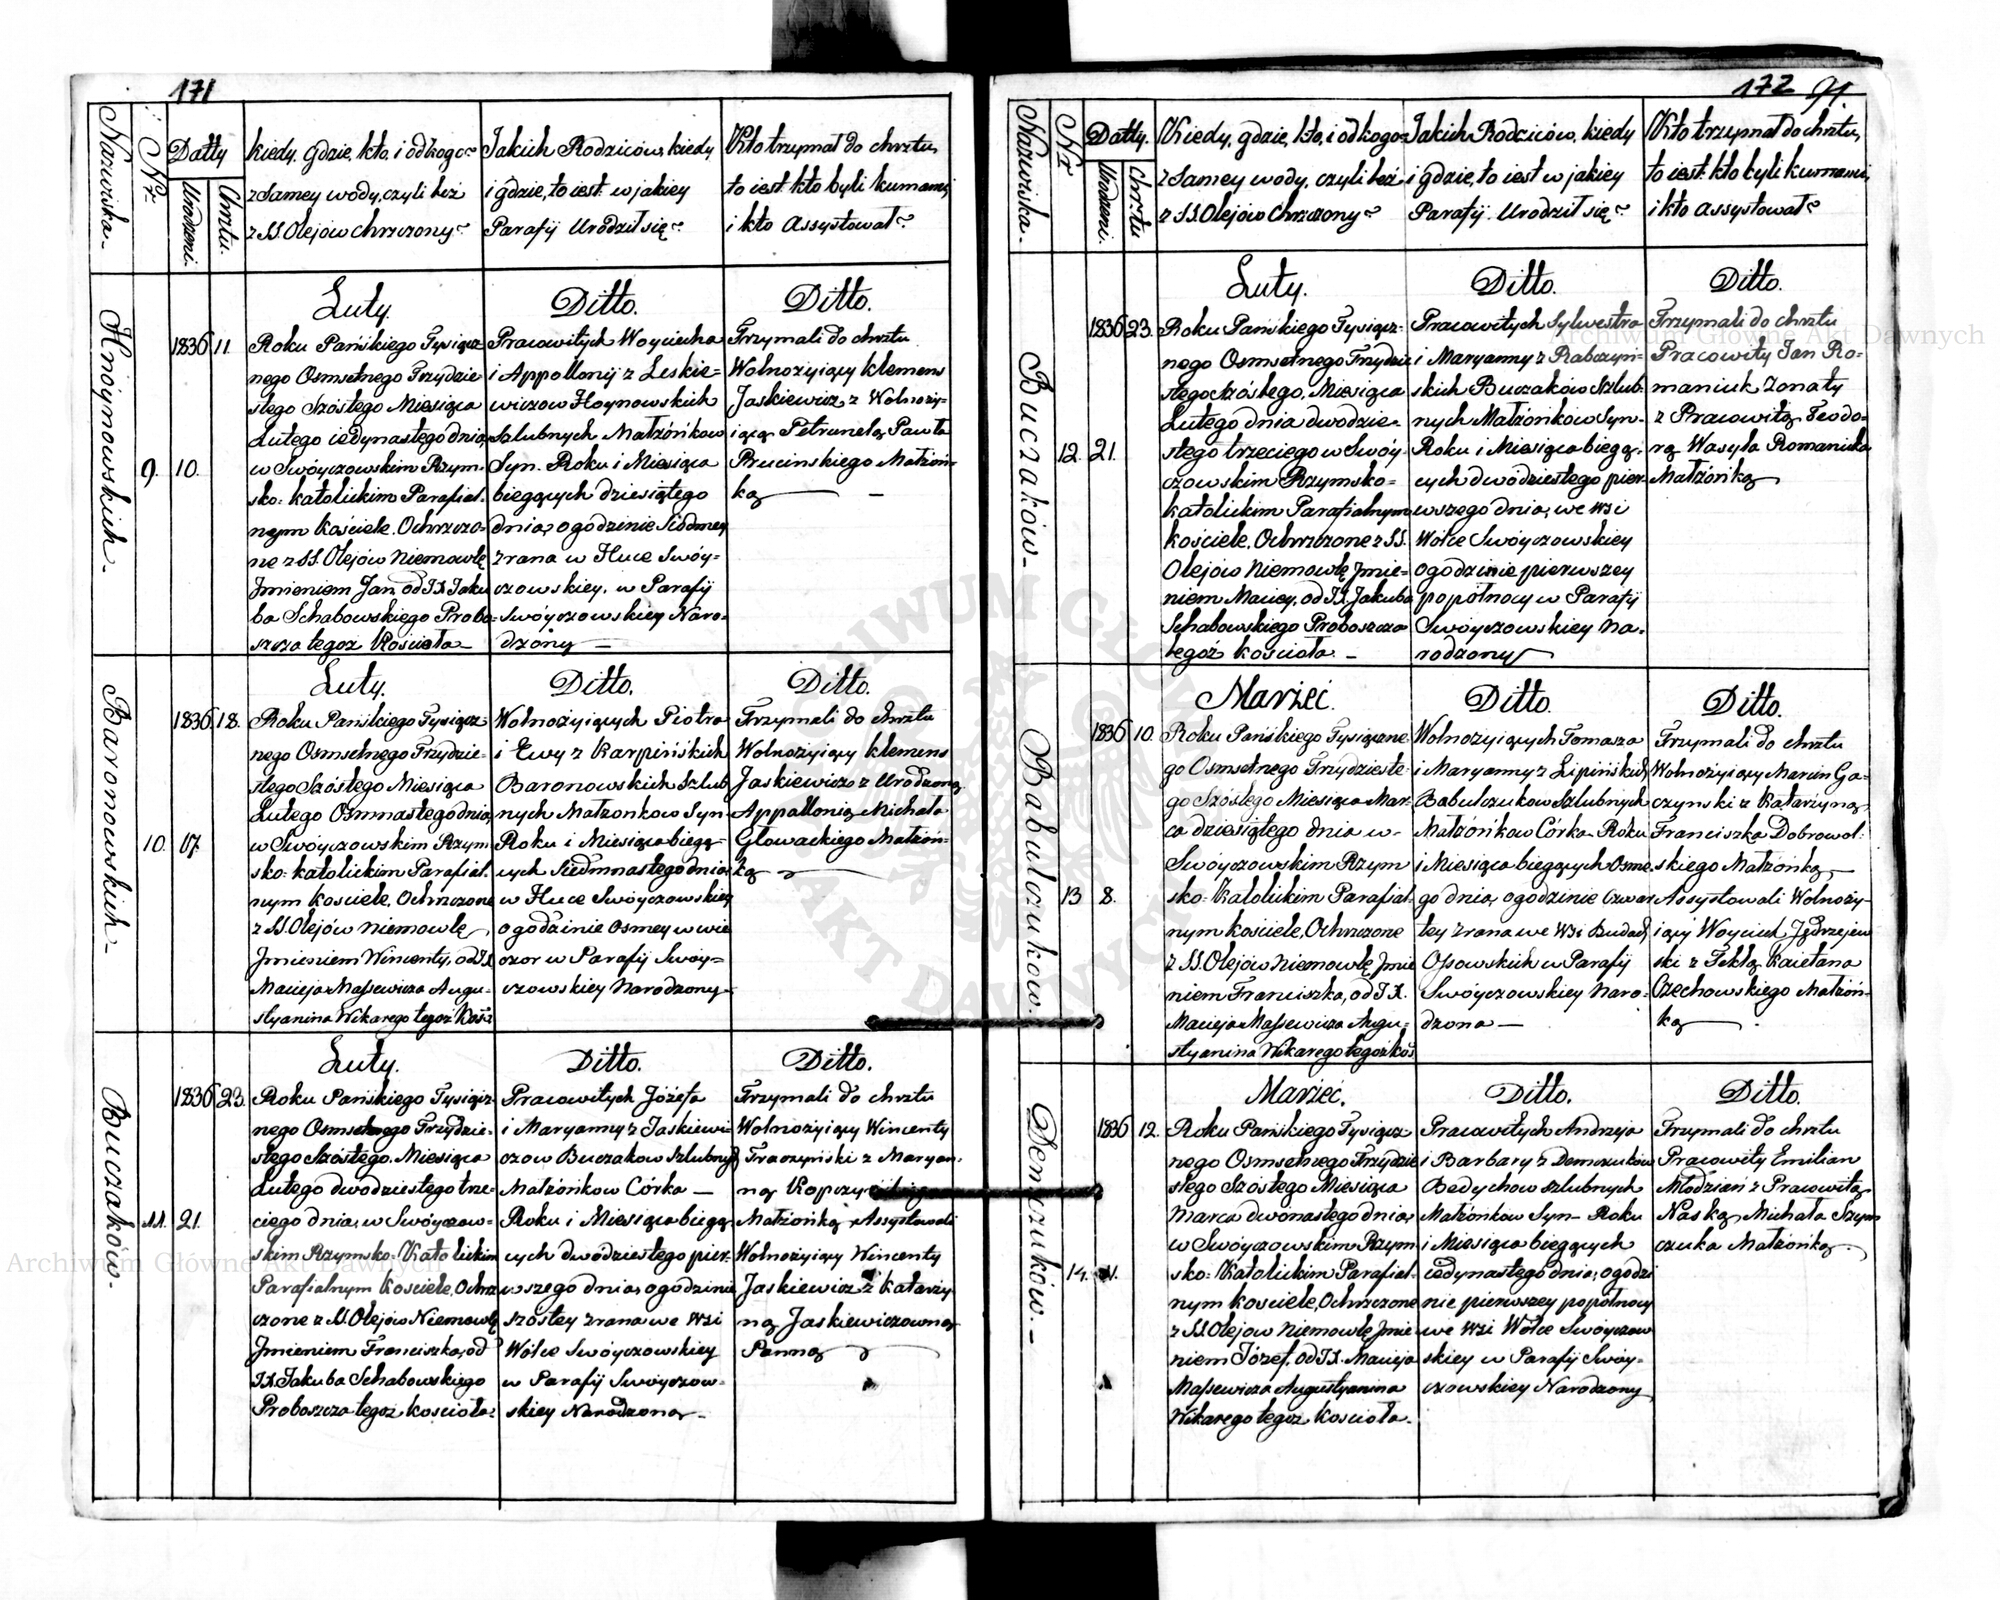 171
Nazwiska.
Nr
Datty
Urodzeni.
Chrztu.
Kiedy, gdzie, kto, i od kogo
z Samey wody, czyli też
z SS. Olejów chrzczony?
Jakich Rodziców, kiedy
i gdzie, to iest w jakiey
Parafij Urodził się?
Kto trzymał do chrztu,
to iest kto byli kumami,
i kto Assystował?
Hnóynowskich.
9.
10.
1836
11.
Luty.
Roku Pańskiego Tysiącz
nego Osmsetnego Trzydzie
stego Szóstego Miesiąca
Lutego iedynastego dnia,
w Swóyczowskim Rzym-
sko-katolickim Parafial.
nym kościele. Ochrzczo-
ne z SS. Olejów Niemowlę
Jmieniem Jan od JX. Jaku
ba Schabowskiego Probo-
szcza tegoż Kościoła
Ditto.
Pracowitych Woyciecha
i Appollonij z Leskie-
wiczow Hoynowskich
Szlubnych Małżónkow
Syn. Roku i Miesiąca
bieggących dziesiątego
dnia, o godzinie Siódmey
z rana w Hucie Swóy-
czowskiey, w Parafij
Swóyczowskiey Naro-
dzóny
Ditto.
Trzymali do chrztu
Wolnożyiący Klemens
Jaskiewicz z Wolnoży-
iącą Petrunelą Pawła
Prucinskiego Małżon-
ką
Baronowskich
10.
17
1836
18.
Luty.
Roku Pańskiego Tysiącz
nego Osmsetnego Trzydzie-
stego Szóstego Miesiąca
Lutego Osmnastego dnia,
w Swóyczowskim Rzym
sko-katolickim Parafial.
nym kościele, Ochrzczone
z SS. Olejów niemowlę
Jmieniem Wincenty, od JX
Macieja Massewicza Augu-
styanina Wikarego tegoż Koś:
Ditto.
Wolnożyiących Piotra
i Ewy z Karpińskich
Baronowskich Szlub
nych Małżonkow Syn
Roku i Miesiąca biegą-
cych Siedmnastego dnia,
w Hucie Swóyczowskiey
o godzinie Osmey w wie
czor w Parafij Swóy-
czowskiey Narodzony
Ditto.
Trzymali do chrztu
Wolnożyiący Klemens
Jaskiewicz z Urodzoną
Appallonią Michała
Głowackiego Małżon-
ką
Buczaków.
11.
21.
1836
23.
Luty.
Roku Pańskiego Tysiącz
nego Osmsetnego Trzydzie-
stego Szóstego. Miesiąca
Lutego dwudziestego trze-
ciego dnia, w Swóyczow-
skim Rzymsko-Katolickim
Parafialnym kościele, Ochrz
czone z SS. Olejów Niemowlę
Jmieniem Franciszka, od
JX. Jakuba Schabowskiego
Proboszcza tegoż kościoła
Ditto.
Pracowitych Józefa
i Maryanny z Jaskiewi-
czow Buczakow Szlubnych
Małżónkow Córka
Roku i Miesiąca biegą
cych dwódziestego pier-
wszego dnia, o godzinie
szóstey z rana we Wsi
Wólce Swóyczowskiey
w Parafij Swóyczow-
skiey Narodzona
Ditto.
Trzymali do chrztu
Wolnożyiący Wincenty
Traczyński z Maryan-
ną
Małżonką, Assystowali
Wolnożyiący Wincenty
Jaskiewicz z Katarzy-
ną Jaskiewiczowną
Panną
172 91
Nazwiska.
Nr
Datty.
Urodzeni.
Chrztu
Kiedy, gdzie, kto, i od kogo
z Samey wody, czyli też
z SS. Olejów Chrzczony?
Jakich Rodziców, kiedy
i gdzie, to iest w jakiey
Parafij Urodził się?
Kto trzymał do chrztu,
to iest kto byli kumami,
i kto Assystował?
Buczaków
12.
21.
1836
23.
Luty.
Roku Pańskiego Tysiącz-
nego Osmsetnego Trzydzie
stego Szóstego, Miesiąca
Lutego dnia dwodzie-
stego trzeciego w Swóy-
czowskim Rzymsko-
katolickim Parafialnym
kościele, Ochrzczone z SS.
Olejów Niemowlę Jmie-
niem Maciey, od JX. Jakuba
Schabowskiego Proboszcza
tegóż kościoła
Ditto.
Pracowitych Sylwestra
i Maryanny z Rabczyń-
skich Buczaków Szlub-
nych Małżónków Syn-
Roku i Miesiąca biegą-
cych dwódziestego pier-
wszego dnia, we Wsi
Wólce Swóyczowskiey
o godzinie pierwszey
po pólnocy w Parafij
Swóyczowskiey Na-
rodzony
Ditto.
Trzymali do chrztu
Pracowity Jan Ro-
maniuk Zonaty
z Pracowitą Teodo-
rą Wasyla Romaniuka
Małżónką
Babulczuków.
13
8.
1836
10.
Marzec.
Roku Pańskiego Tysiączne
go Osmsetnego Trzydzieste
go Szóstego Miesiąca Mar-
ca dziesiątego dnia w
Swóyczowskim Rzym
sko-Katolickim Parafial-
nym kościele, Ochrzczone
z SS. Olejów Niemowlę Jmie
niem Franciszka, od JX.
Macieja Massewicza Augu-
styanina Wikarego tegoż koś
Ditto.
Wolnożyiących Tomasza
i Maryanny z Lipińskich
Babulczukow Szlubnych
Małżónkow Córka Roku
i Miesiąca biegących Osme
go dnia, o godzinie Czwar
tey z rana we Wsi Budach
Ossowskich w Parafij
Swóyczowskiey Naro-
dzona
Ditto.
Trzymali do chrztu
Wolnożyiący Marcin Ga-
czynski z Katarzyną
Franciszka Dobrowol-
skiego Małżonką
Assystowali Wolnoży-
iący Woyciech Jędrzejew
ski z Teklą Kaietana
Czechowskiego Małżón-
ką
Demczuków.
14.
11.
1836
12.
Marzec.
Roku Pańskiego Tysiącz
nego Osmsetnego Trzydzie
stego Szóstego Miesiąca
Marca dwónastego dnia,
w Swóyczowskim Rzym
sko-Katolickim Parafial-
nym kościele, Ochrzczone
z SS. Olejów Niemowlę Jmie
niem Józef, od JX. Macieja
Massewicza Augustyanina
Wikarego tegoż kościoła.
Ditto.
Pracowitych Andrzeja
i Barbary z Demczuków
Bedychow szlubnych
Małżónkow Syn Roku
i Miesiąca biegących
iedynastego dnia, o godzi
nie pierwszey popólnocy
we Wsi Wólce Swóyczow
skiey w Parafij Swóy-
czowskiey Narodzony
Ditto.
Trzymali do chrztu
Pracowity Emilian
Młodzian z Pracowitą
Naską Michała Szym
czuka Małżonką
Archiwum Główne Akt Dawnych
Archiwum Główne Akt Dawnych
ARCHIWUM GŁÓWNE AKT DAWNYCH